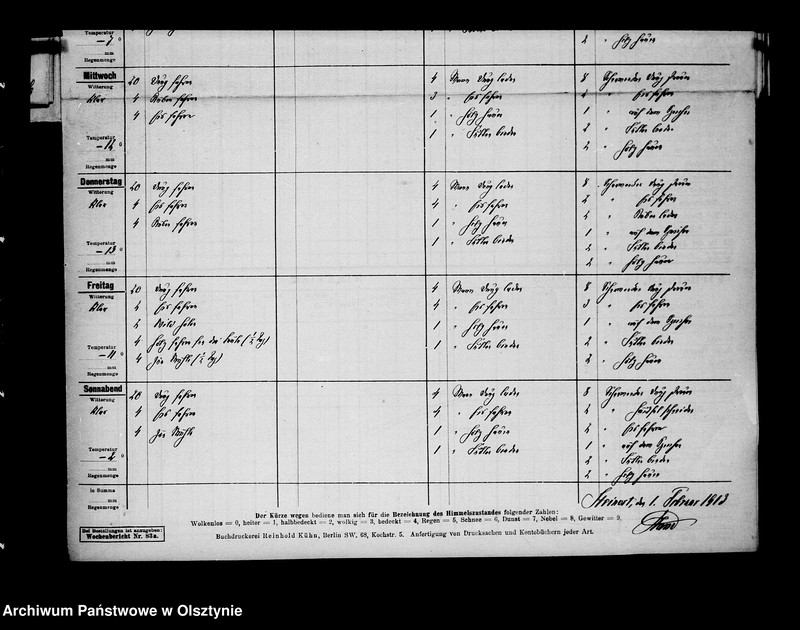 Temperatur
– 7 °
mm
Regenmenge
2 " Holz hauen
Mittwoch
Witterung
klar
20 Dung fahren
4 Rüben fahren
4 Eis fahren
4 Mann Dung laden
3 " Eis fahren
1 " Holz hauen
1 " Futter
8 Scharwerker Dung
2 " Eis fahren
1 " auf dem Speicher
2 " Futter
2 " Holz hauen
Temperatur
– 12 °
mm
Regenmenge
Donnerstag
Witterung
klar
20 Dung fahren
4 Eis fahren
4 Rüben fahren
4 Mann Dung laden
4 " Eis fahren
1 " Holz hauen
1 " Futter
8 Scharwerker Dung
2 " Eis fahren
2 " Rüben laden
1 " auf dem Speicher
2 " Futter
2 " Holz hauen
Temperatur
– 13 °
mm
Regenmenge
Freitag
Witterung
klar
20 Dung fahren
4 Eis fahren
2 holen
4 Holz fahren für die Leute (½ Tag)
4 Zur Mühle (½ Tag)
4 Mann Dung laden
4 " Eis fahren
1 " Holz hauen
1 " Futter
8 Scharwerker Dung
3 " Eis fahren
1 " auf dem Speicher
2 " Futter
2 " Holz hauen
Temperatur
– 11 °
mm
Regenmenge
Sonnabend
Witterung
klar
20 Dung fahren
4 Eis fahren
4 Zur Mühle
4 Mann Dung laden
4 " Eis fahren
1 " Holz hauen
1 " Futter
8 Scharwerker Dung
2 " schneiden
2 " Eis fahren
1 " auf dem Speicher
2 " Futter
2 " Holz hauen
Temperatur
°
mm
Regenmenge
in Summa
mm
Regenmenge
den 1. Februar 1913
Der Kürze wegen bediene man sich für die Bezeichnung des Himmelszustandes folgender Zahlen:
Wolkenlos = 0, heiter = 1, halbbedeckt = 2, wolkig = 3, bedeckt = 4, Regen = 5, Schnee = 6, Dunst = 7, Nebel = 8, Gewitter = 9.
Bei Bestellungen ist anzugeben:
Wochenbericht Nr. 83a.
Buchdruckerei Reinhold Kühn, Berlin SW. 68, Kochstr. 5. Anfertigung von Drucksachen und Kontobüchern jeder Art.
Archiwum Państwowe w Olsztynie